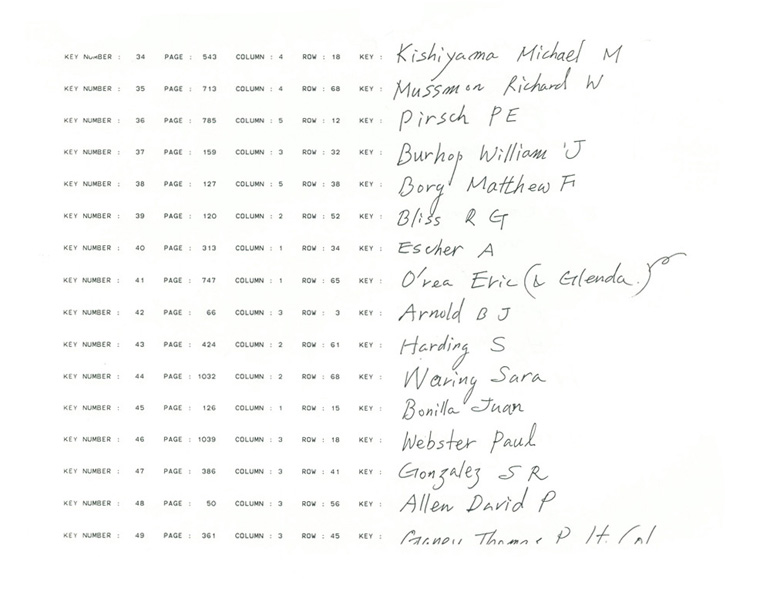 KEY NUMBER : 34 PAGE : 543 COLUMN : 4 ROW : 18 KEY : Kishiyama Michael M
KEY NUMBER : 35 PAGE : 713 COLUMN : 4 ROW : 68 KEY : Mussmon Richard W
KEY NUMBER : 36 PAGE : 785 COLUMN : 5 ROW : 12 KEY : Pirsch P E
KEY NUMBER : 37 PAGE : 159 COLUMN : 3 ROW : 32 KEY : Burhop William J
KEY NUMBER : 38 PAGE : 127 COLUMN : 5 ROW : 38 KEY : Borg Matthew F
KEY NUMBER : 39 PAGE : 120 COLUMN : 2 ROW : 52 KEY : Bliss R G
KEY NUMBER : 40 PAGE : 313 COLUMN : 1 ROW : 34 KEY : Escher A
KEY NUMBER : 41 PAGE : 747 COLUMN : 1 ROW : 65 KEY : O'rea Eric (& Glenda.)
KEY NUMBER : 42 PAGE : 66 COLUMN : 3 ROW : 3 KEY : Arnold B J
KEY NUMBER : 43 PAGE : 424 COLUMN : 2 ROW : 61 KEY : Harding S
KEY NUMBER : 44 PAGE : 1032 COLUMN : 2 ROW : 68 KEY : Waring Sara
KEY NUMBER : 45 PAGE : 126 COLUMN : 1 ROW : 15 KEY : Bonilla Juan
KEY NUMBER : 46 PAGE : 1039 COLUMN : 3 ROW : 18 KEY : Webster Paul
KEY NUMBER : 47 PAGE : 386 COLUMN : 3 ROW : 41 KEY : Gonzalez S R
KEY NUMBER : 48 PAGE : 50 COLUMN : 3 ROW : 56 KEY : Allen David P
KEY NUMBER : 49 PAGE : 361 COLUMN : 3 ROW : 45 KEY : Thomas P